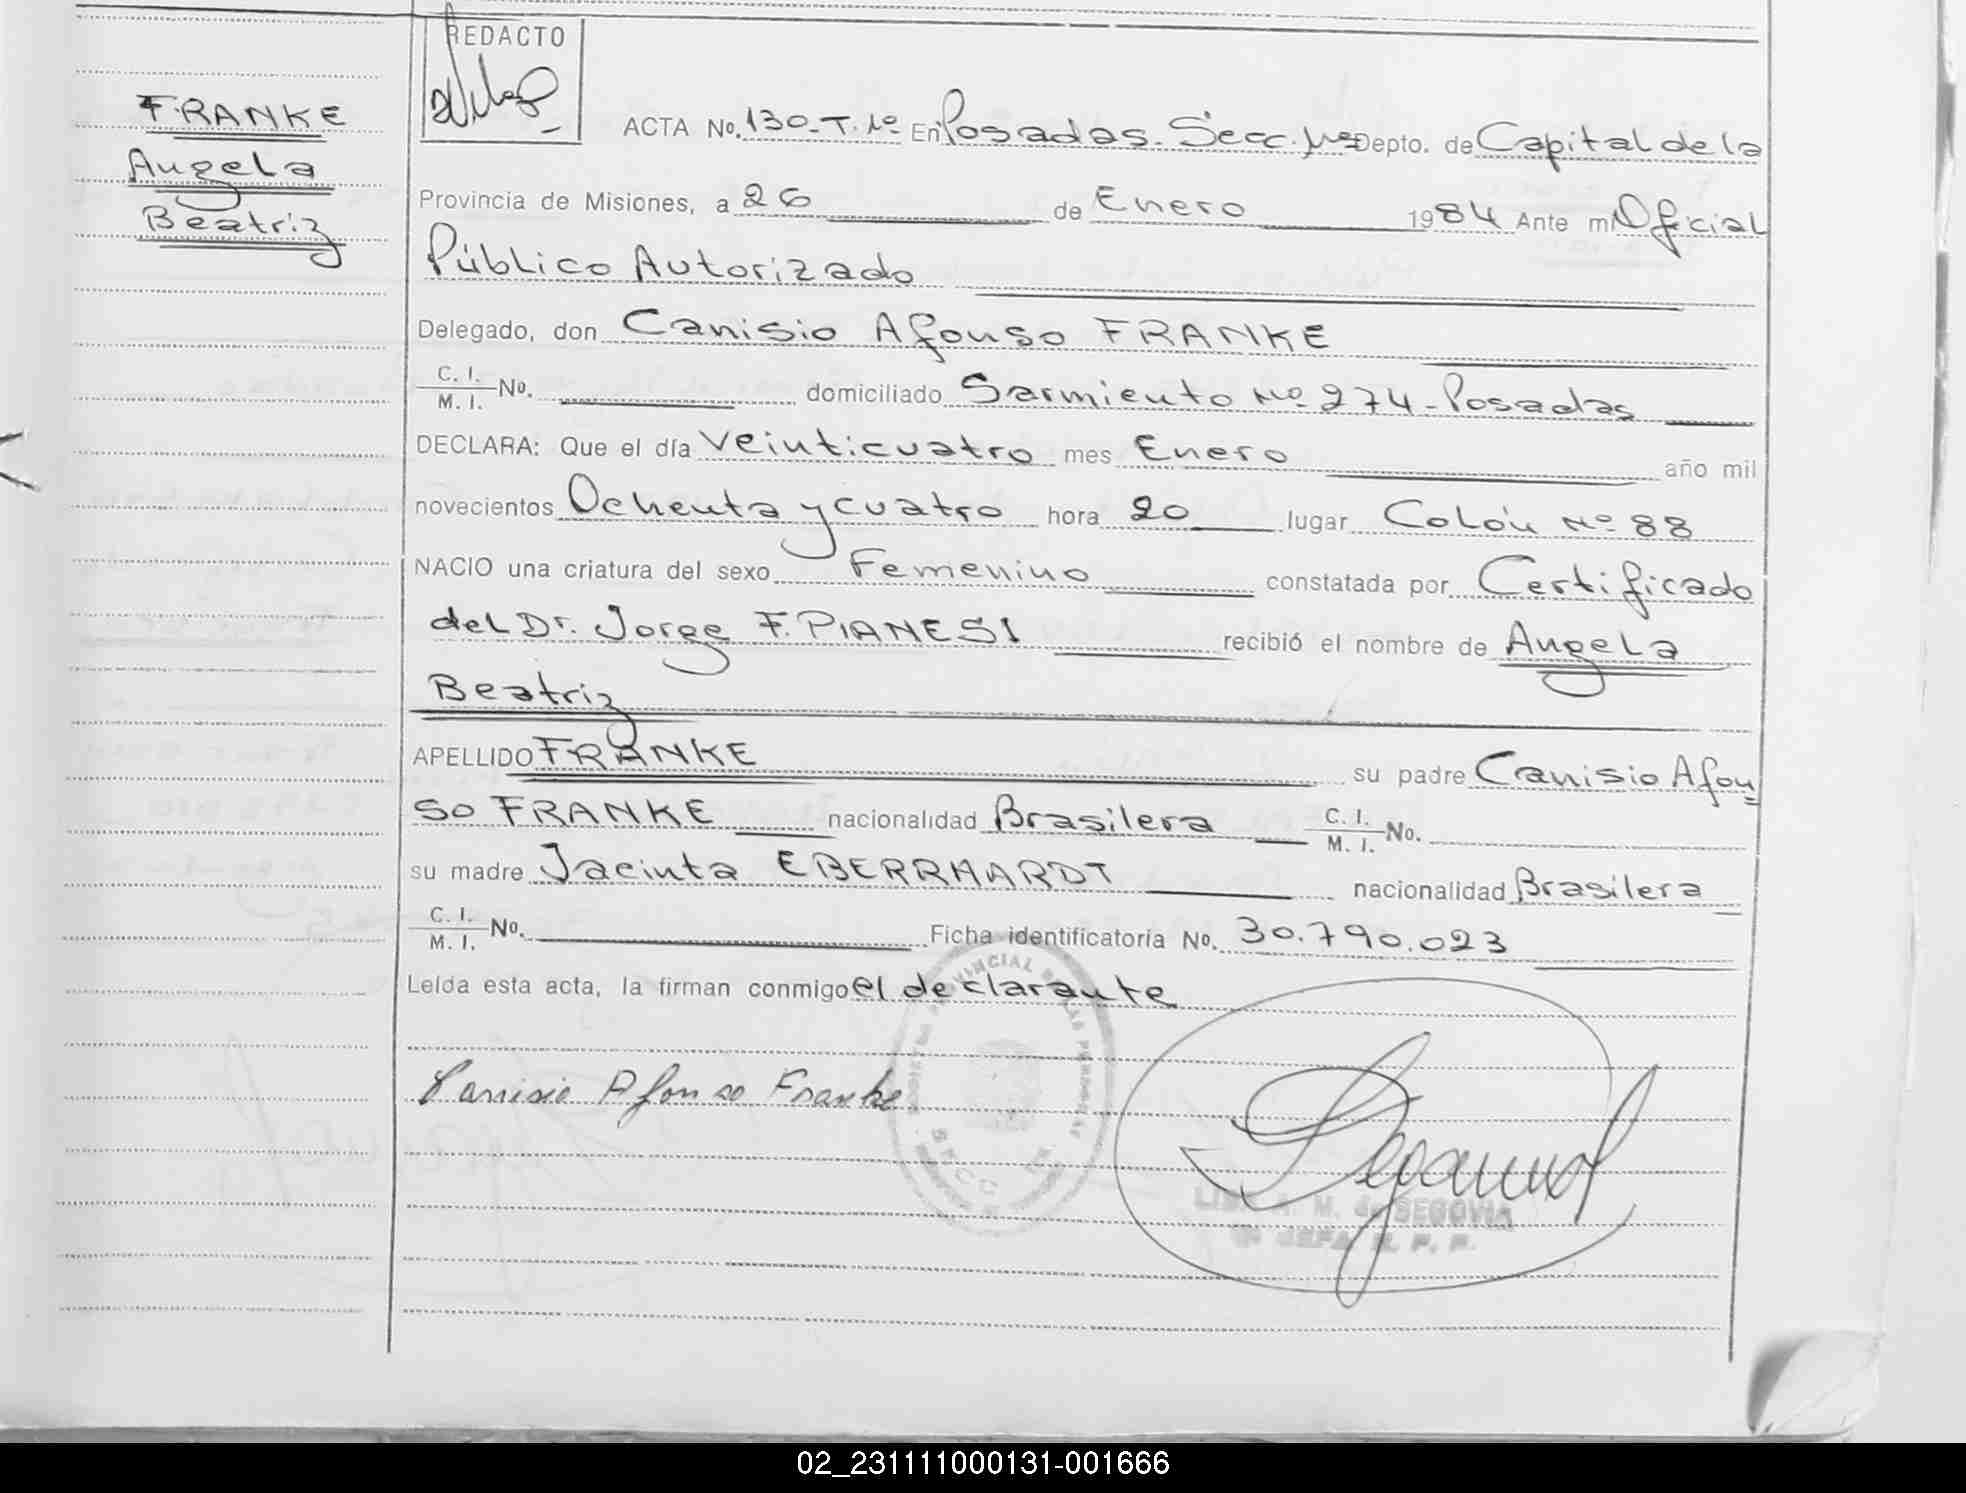 FRANKE
Angela
Beatriz
REDACTO
ACTA No. 130-T. 1º En Posadas. Secc. 1ra Depto. de Capital de la
Provincia de Misiones, a 26 de Enero 1984 Ante mi Oficial
Público Autorizado
Delegado, don Canisio Afonso FRANKE
C. I. / M. I. No. domiciliado Sarmiento Nº 274-Posadas
DECLARA: Que el día Veinticuatro mes Enero año mil
novecientos Ochenta y cuatro hora 20 lugar Colón Nº 88
NACIO una criatura del sexo Femenino constatada por Certificado
del Dr. Jorge F. PIANESI recibió el nombre de Angela
Beatriz
APELLIDO FRANKE su padre Canisio Afon=
so FRANKE nacionalidad Brasilera C. I. / M. I. No.
su madre Jacinta EBERRHARDT nacionalidad Brasilera
C. I. / M. I. No. Ficha identificatoria No. 30.790.023
Leída esta acta, la firman conmigo el declarante
Canisio Afonso Franke
A. M. de SEGOVIA
JEFA R. P. P.
02_231111000131-001666